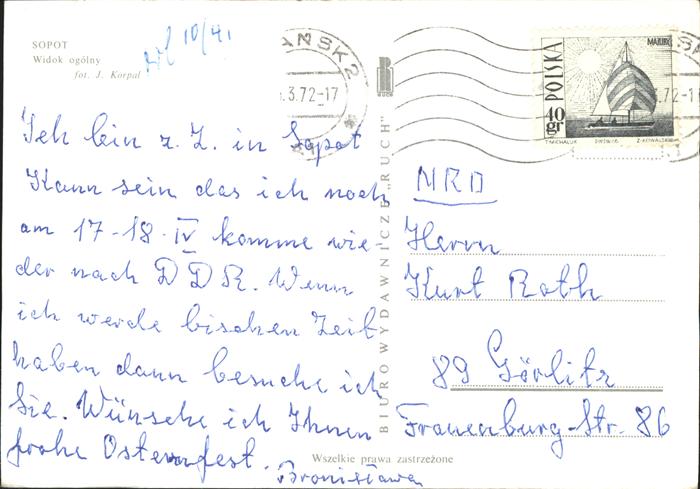 SOPOT
Widok ogólny
fot. J. Korpal
10/41
GDAŃSK 2
3.72-17
RUCH
POLSKA
40 gr
T. MICHALUK
Z. KOWALSKI
3.72-1
Ich bin z. Z. in Sopot
Kann sein das ich noch
am 17-18-IV komme wie-
der nach DDR. Wenn
ich werde bischen Zeit
haben dann besuche ich
Sie. Wünsche ich Ihnen
frohe Osternfest.
Bronisława
BIURO WYDAWNICZE „RUCH"
NRD
Herrn
Kurt Roth
89 Görlitz
Frauenburg-Str. 86
Wszelkie prawa zastrzeżone